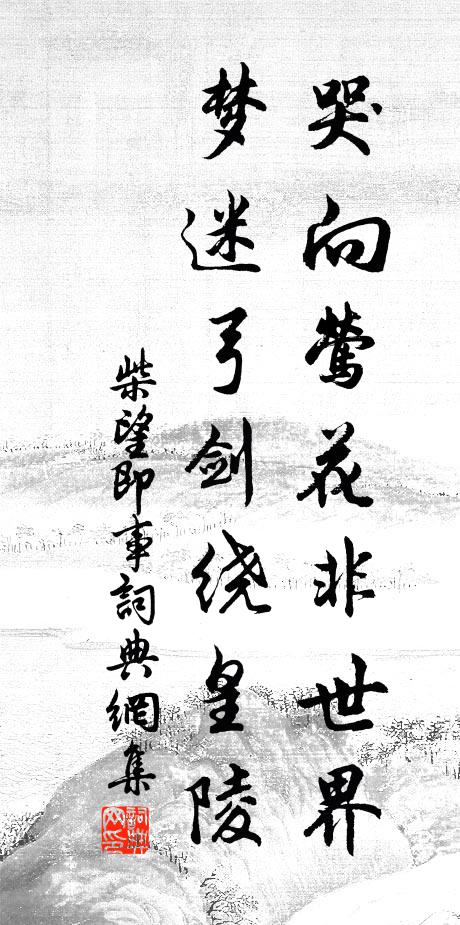 哭向莺花非世界
梦迷弓剑绕皇陵
柴望即事詞典網集
詞典网印